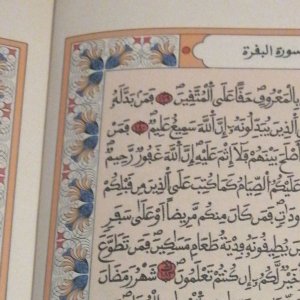 سورة البقرة
بِالْمَعْرُوفِ حَقًّا عَلَى الْمُتَّقِينَ فَمَنْ بَدَّلَهُ
الَّذِينَ يُبَدِّلُونَهُ إِنَّ اللَّهَ سَمِيعٌ عَلِيمٌ فَمَنْ
أَصْلَحَ بَيْنَهُمْ فَلَا إِثْمَ عَلَيْهِ إِنَّ اللَّهَ غَفُورٌ رَّحِيمٌ
عَلَيْكُمُ الصِّيَامُ كَمَا كُتِبَ عَلَى الَّذِينَ مِن قَبْلِكُمْ
فَمَن كَانَ مِنكُم مَّرِيضًا أَوْ عَلَى سَفَرٍ
يُطِيقُونَهُ فِدْيَةُ طَعَامِ مَسَاكِينَ فَمَن تَطَوَّعَ
خَيْرٌ لَّكُمْ إِن كُنتُمْ تَعْلَمُونَ شَهْرُ رَمَضَانَ